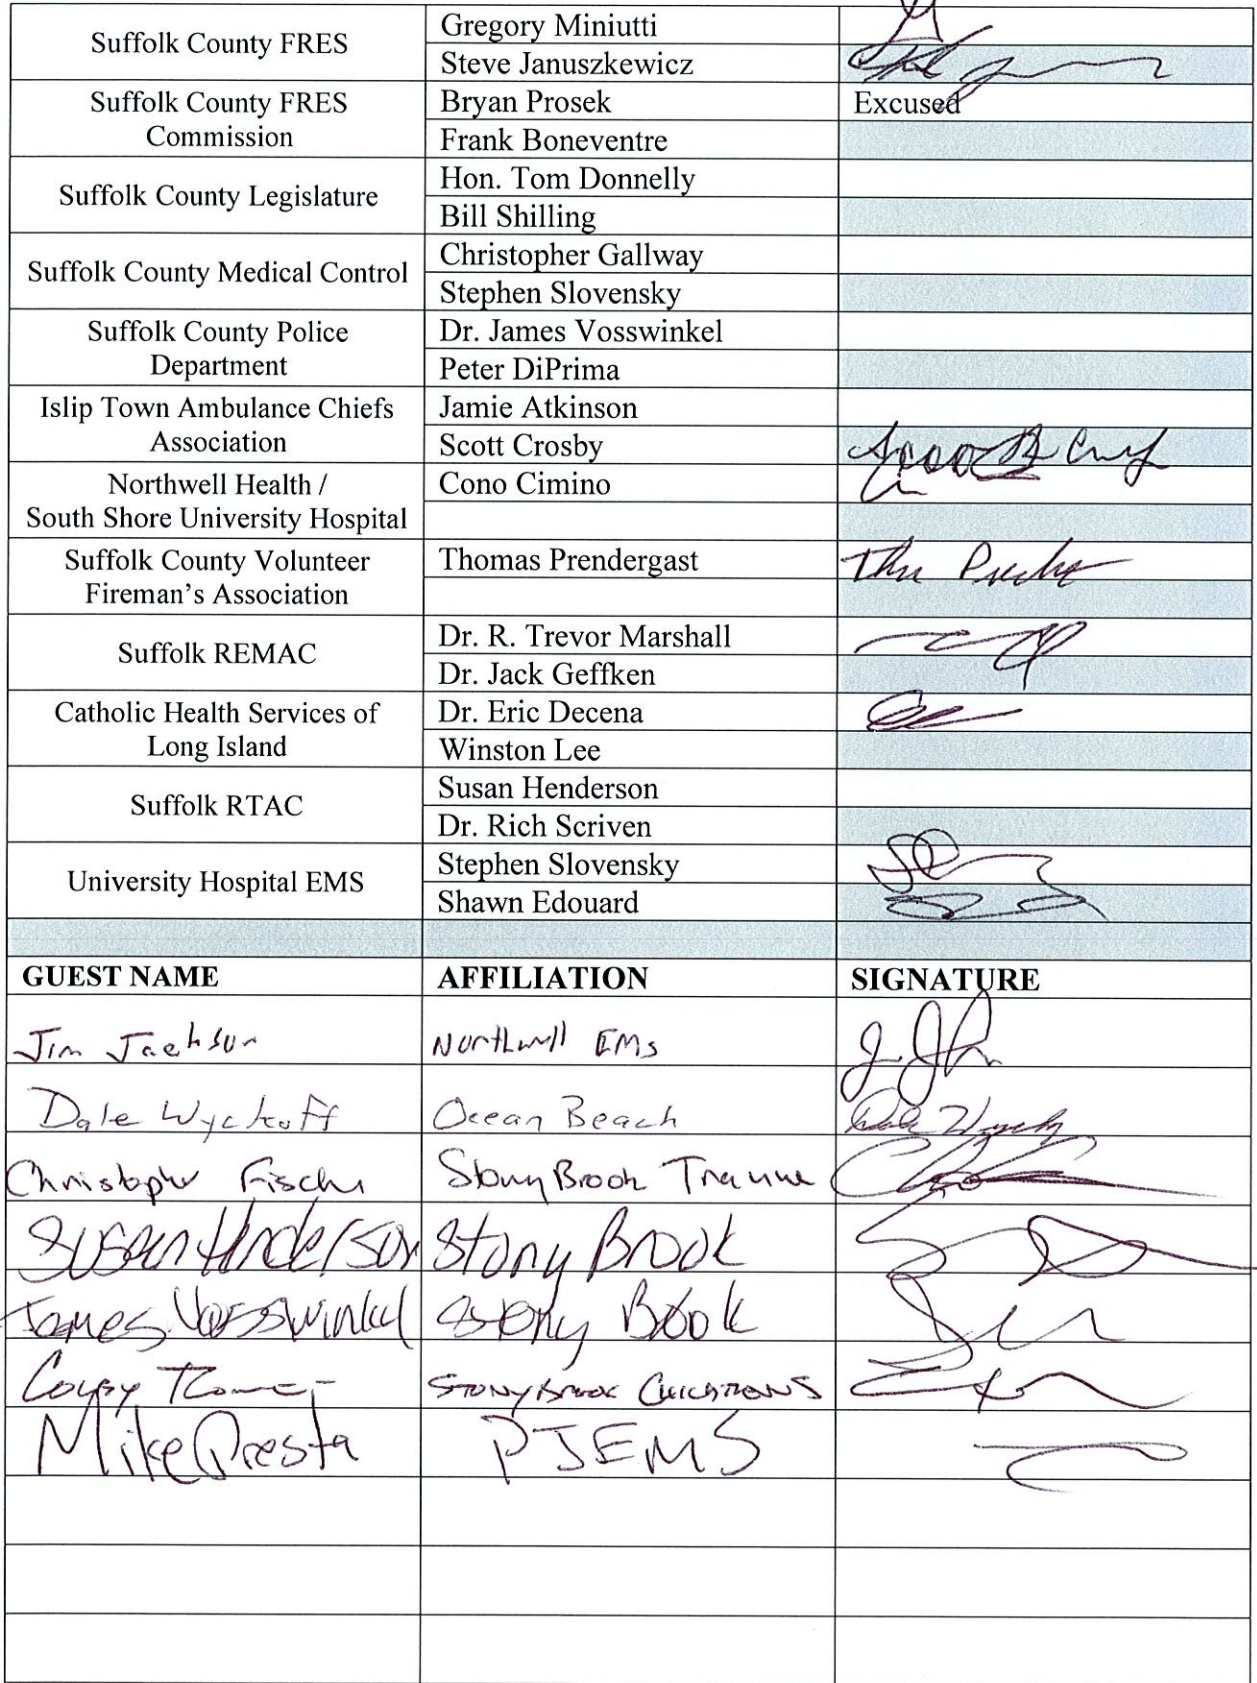 Suffolk County FRES
Gregory Miniutti
Steve Januszkewicz
Suffolk County FRES
Commission
Bryan Prosek
Excused
Frank Boneventre
Suffolk County Legislature
Hon. Tom Donnelly
Bill Shilling
Suffolk County Medical Control
Christopher Gallway
Stephen Slovensky
Suffolk County Police
Department
Dr. James Vosswinkel
Peter DiPrima
Islip Town Ambulance Chiefs
Association
Jamie Atkinson
Scott Crosby
Northwell Health /
South Shore University Hospital
Cono Cimino
Suffolk County Volunteer
Fireman's Association
Thomas Prendergast
Suffolk REMAC
Dr. R. Trevor Marshall
Dr. Jack Geffken
Catholic Health Services of
Long Island
Dr. Eric Decena
Winston Lee
Suffolk RTAC
Susan Henderson
Dr. Rich Scriven
University Hospital EMS
Stephen Slovensky
Shawn Edouard
GUEST NAME AFFILIATION SIGNATURE
Jim Jackson Northwell EMS
Dale Wyckoff Ocean Beach
Christopher Stony Brook Trauma
Susan Henderson Stony Brook
James Vosswinkel Stony Brook
Stony Brook
Mike Presta PJEMS